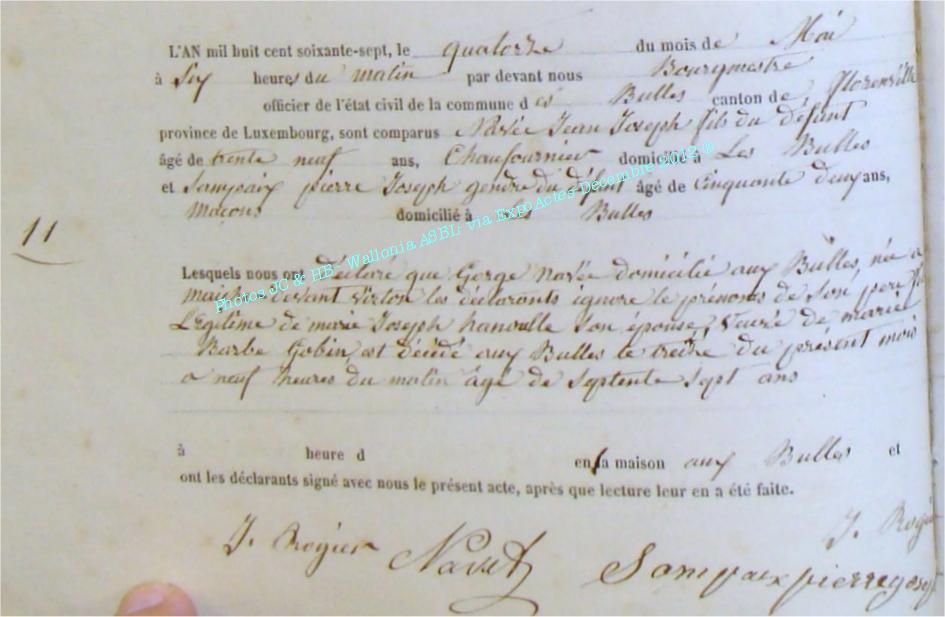 L'AN mil huit cent soixante-sept, le quatorze du mois de Mai
à Six heures du matin par devant nous Bourgmestre
officier de l'état civil de la commune d es Bulles canton de, florenville
province de Luxembourg, sont comparus Navée Jean Joseph fils du défunt
âgé de trente neuf ans, Chaufournier domicilié à Les Bulles
et Sampaix pierre Joseph gendre du défunt âgé de Cinquante deux ans,
macons domicilié à Les Bulles
11
Lesquels nous ont déclaré que Gorge Navée domicilié aux Bulles, née a
devant Virton les déclaronts ignore le prénoms de son pere
Légitime de marie Joseph hanoulle son épouse, Veuve de marie
Barbe Gobin, est décédé aux Bulles le treize du présent mois
a neuf heures du matin âgé de septente sept ans
à heure d en la maison aux Bulles et
ont les déclarants signé avec nous le présent acte, après que lecture leur en a été faite.
J. Rogier
J. Rogier Navet Sampaix pierre
Photos JC & HB- Wallonia ASBL; via ExpoActes-Decembre 2012 ®